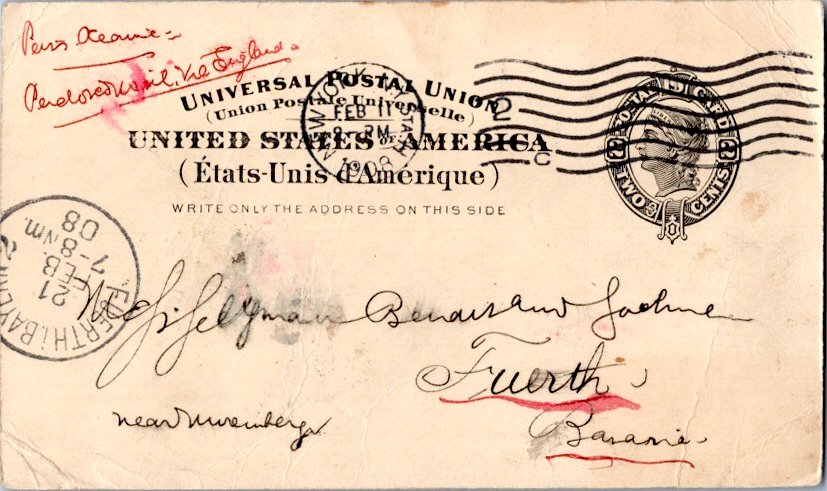 Per s Oceanic
Enclosed Mail. Via England.
UNIVERSAL POSTAL UNION
(Union Postale Universelle)
UNITED STATES OF AMERICA
(États-Unis d'Amérique)
WRITE ONLY THE ADDRESS ON THIS SIDE
NEW YORK STA
FEB 11
2 PM
1908
2
C
POSTAL CARD
2 2
TWO CENTS
FUERTH i. BAYERN 2
21
FEB
7-8 Nm.
08
Messrs
Fuerth
near Nuremberg
Bavaria